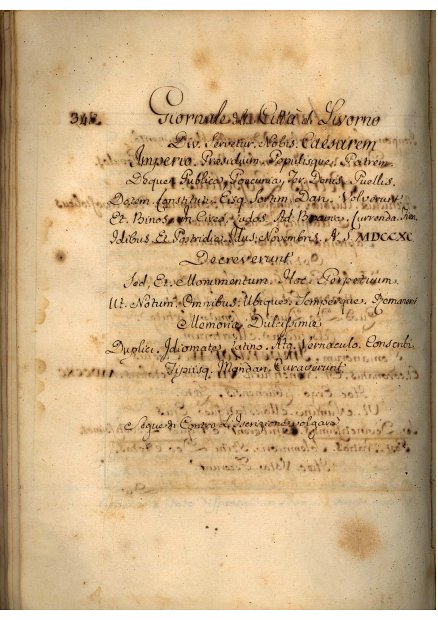 342 Giornale della Città di Livorno
Div. Servetur. Nobis. Caesarem
Imperio. Praesidium. Populisque. Patrem.
Deque. Publica. Pecunia. Denis. Puellis.
Dotem. Constitui. Eisq. Sortem. Dari. Voluerunt
Et. Binos. In Circo. Ludos. Ad. Currenda.
Idibus. Et. Postridie. Idus. Novembris. A. S. MDCCXC
Decreverunt
Sed. Et. Monumentum. Hoc. Perpetuum
Ut. Notum. Omnibus. Ubique. Semperque. Remaneri
Memoria. Dulcissima
Duplici. Idiomate. Latino. Atq. Vernaculo. Conscribi
Typisq. Mandari. Curaverunt
E segue di Contro la Iscrizione volgare